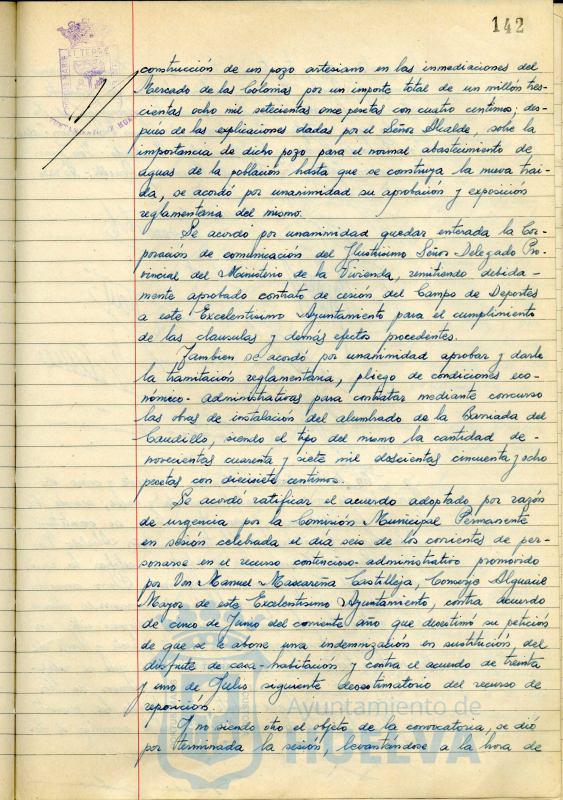 142
construcción de un pozo artesiano en las inmediaciones del
Mercado de las Colonias por un importe total de un millón tres-
cientas ocho mil setecientas once pesetas con cuatro centimos, des-
pués de las explicaciones dadas por el Señor Alcalde, sobre la
importancia de dicho pozo para el normal abastecimiento de
aguas de la población hasta que se construya la nueva trai-
da, se acordó por unanimidad su aprobación y exposición
reglamentaria del mismo.
Se acordó por unanimidad quedar enterada la Cor-
poración de comunicación del Ilustrisimo Señor Delegado Pro-
vincial del Ministerio de la Vivienda, remitiendo debida-
mente aprobado contrato de cesión del Campo de Deportes
a este Excelentisimo Ayuntamiento para el cumplimiento
de las clausulas y demás efectos procedentes.
Tambien se acordó por unanimidad aprobar y darle
la tramitación reglamentaria, pliego de condiciones eco-
nómico-administrativas para contratar mediante concurso
las obras de instalación del alumbrado de la Barriada del
Caudillo, siendo el tipo del mismo la cantidad de
novecientas cuarenta y siete mil doscientas cincuenta y ocho
pesetas con diecisiete centimos.
Se acordó ratificar el acuerdo adoptado por razón
de urgencia por la Comisión Municipal Permanente
en sesión celebrada el día seis de los corrientes de per-
sonarse en el recurso contencioso-administrativo promovido
por Don Manuel Mascareña Castilleja, Conserje Alguacil
Mayor de este Excelentisimo Ayuntamiento, contra acuerdo
de cinco de Junio del corriente año que desestimó su petición
de que se le abone una indemnización en sustitución del
disfrute de casa-habitación y contra el acuerdo de treinta
y uno de Julio siguiente desestimatorio del recurso de
reposición.
Y no siendo otro el objeto de la convocatoria, se dió
por terminada la sesión, levantandose a la hora de
Ayuntamiento de
HUELVA